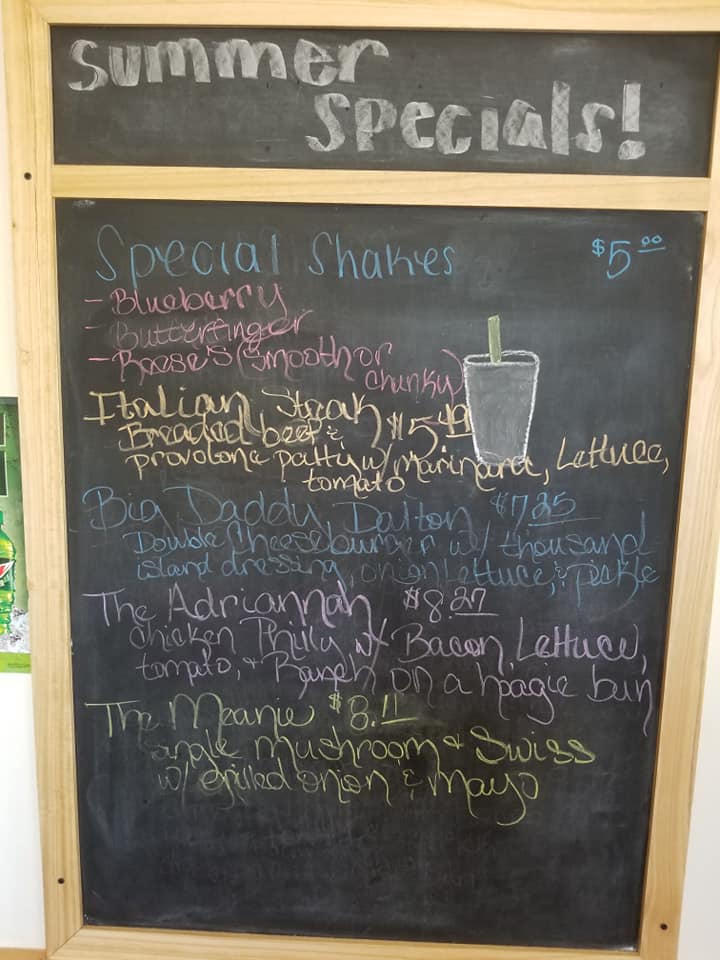 Summer
Specials!
Special Shakes $5.00
- Blueberry
- Butterfinger
- Reese's (Smooth or
chunky)
Italian Steak $5.49
Breaded beef &
provolone patty w/ Marinara, Lettuce,
tomato
Big Daddy Dalton $7.25
Double Cheeseburger w/ thousand
island dressing, onion, lettuce, & pickle
The Adriannah $8.27
Chicken Philly w/ Bacon, Lettuce,
tomato, & Ranch on a hoagie bun
The Meanie $8.11
Single mushroom & Swiss
w/ grilled onion & mayo